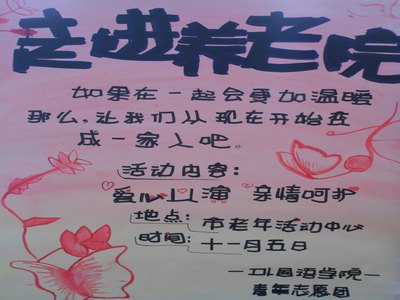 走进养老院
如果在一起会更加温暖
那么,让我们从现在开始在
成一家人吧。
活动内容:
爱心义演 亲情呵护
地点: 市老年活动中心
时间: 十一月五日
外国语学院
青年志愿团